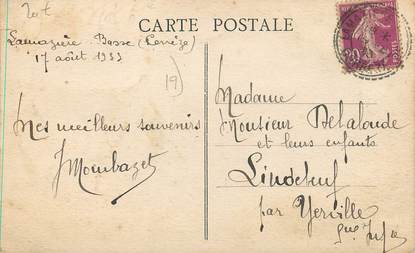 20t
CARTE POSTALE
Lamazière-Basse (Corrèze)
17 août 1933
19
Mes meilleurs souvenirs
J Mombazet
Madame
Monsieur Delalonde
et leurs enfants
Lindebeuf
par Yerville
Sne Infre
20